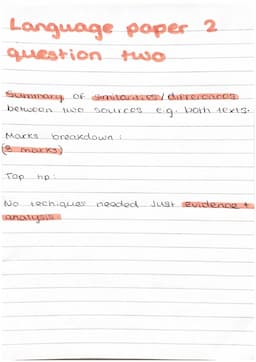 Language paper 2
question two
Summary of similarities / differences
between two sources e.g. both texts.
Marks breakdown :
(8 marks)
Top tip :
No techiques needed Just evidence +
analysis